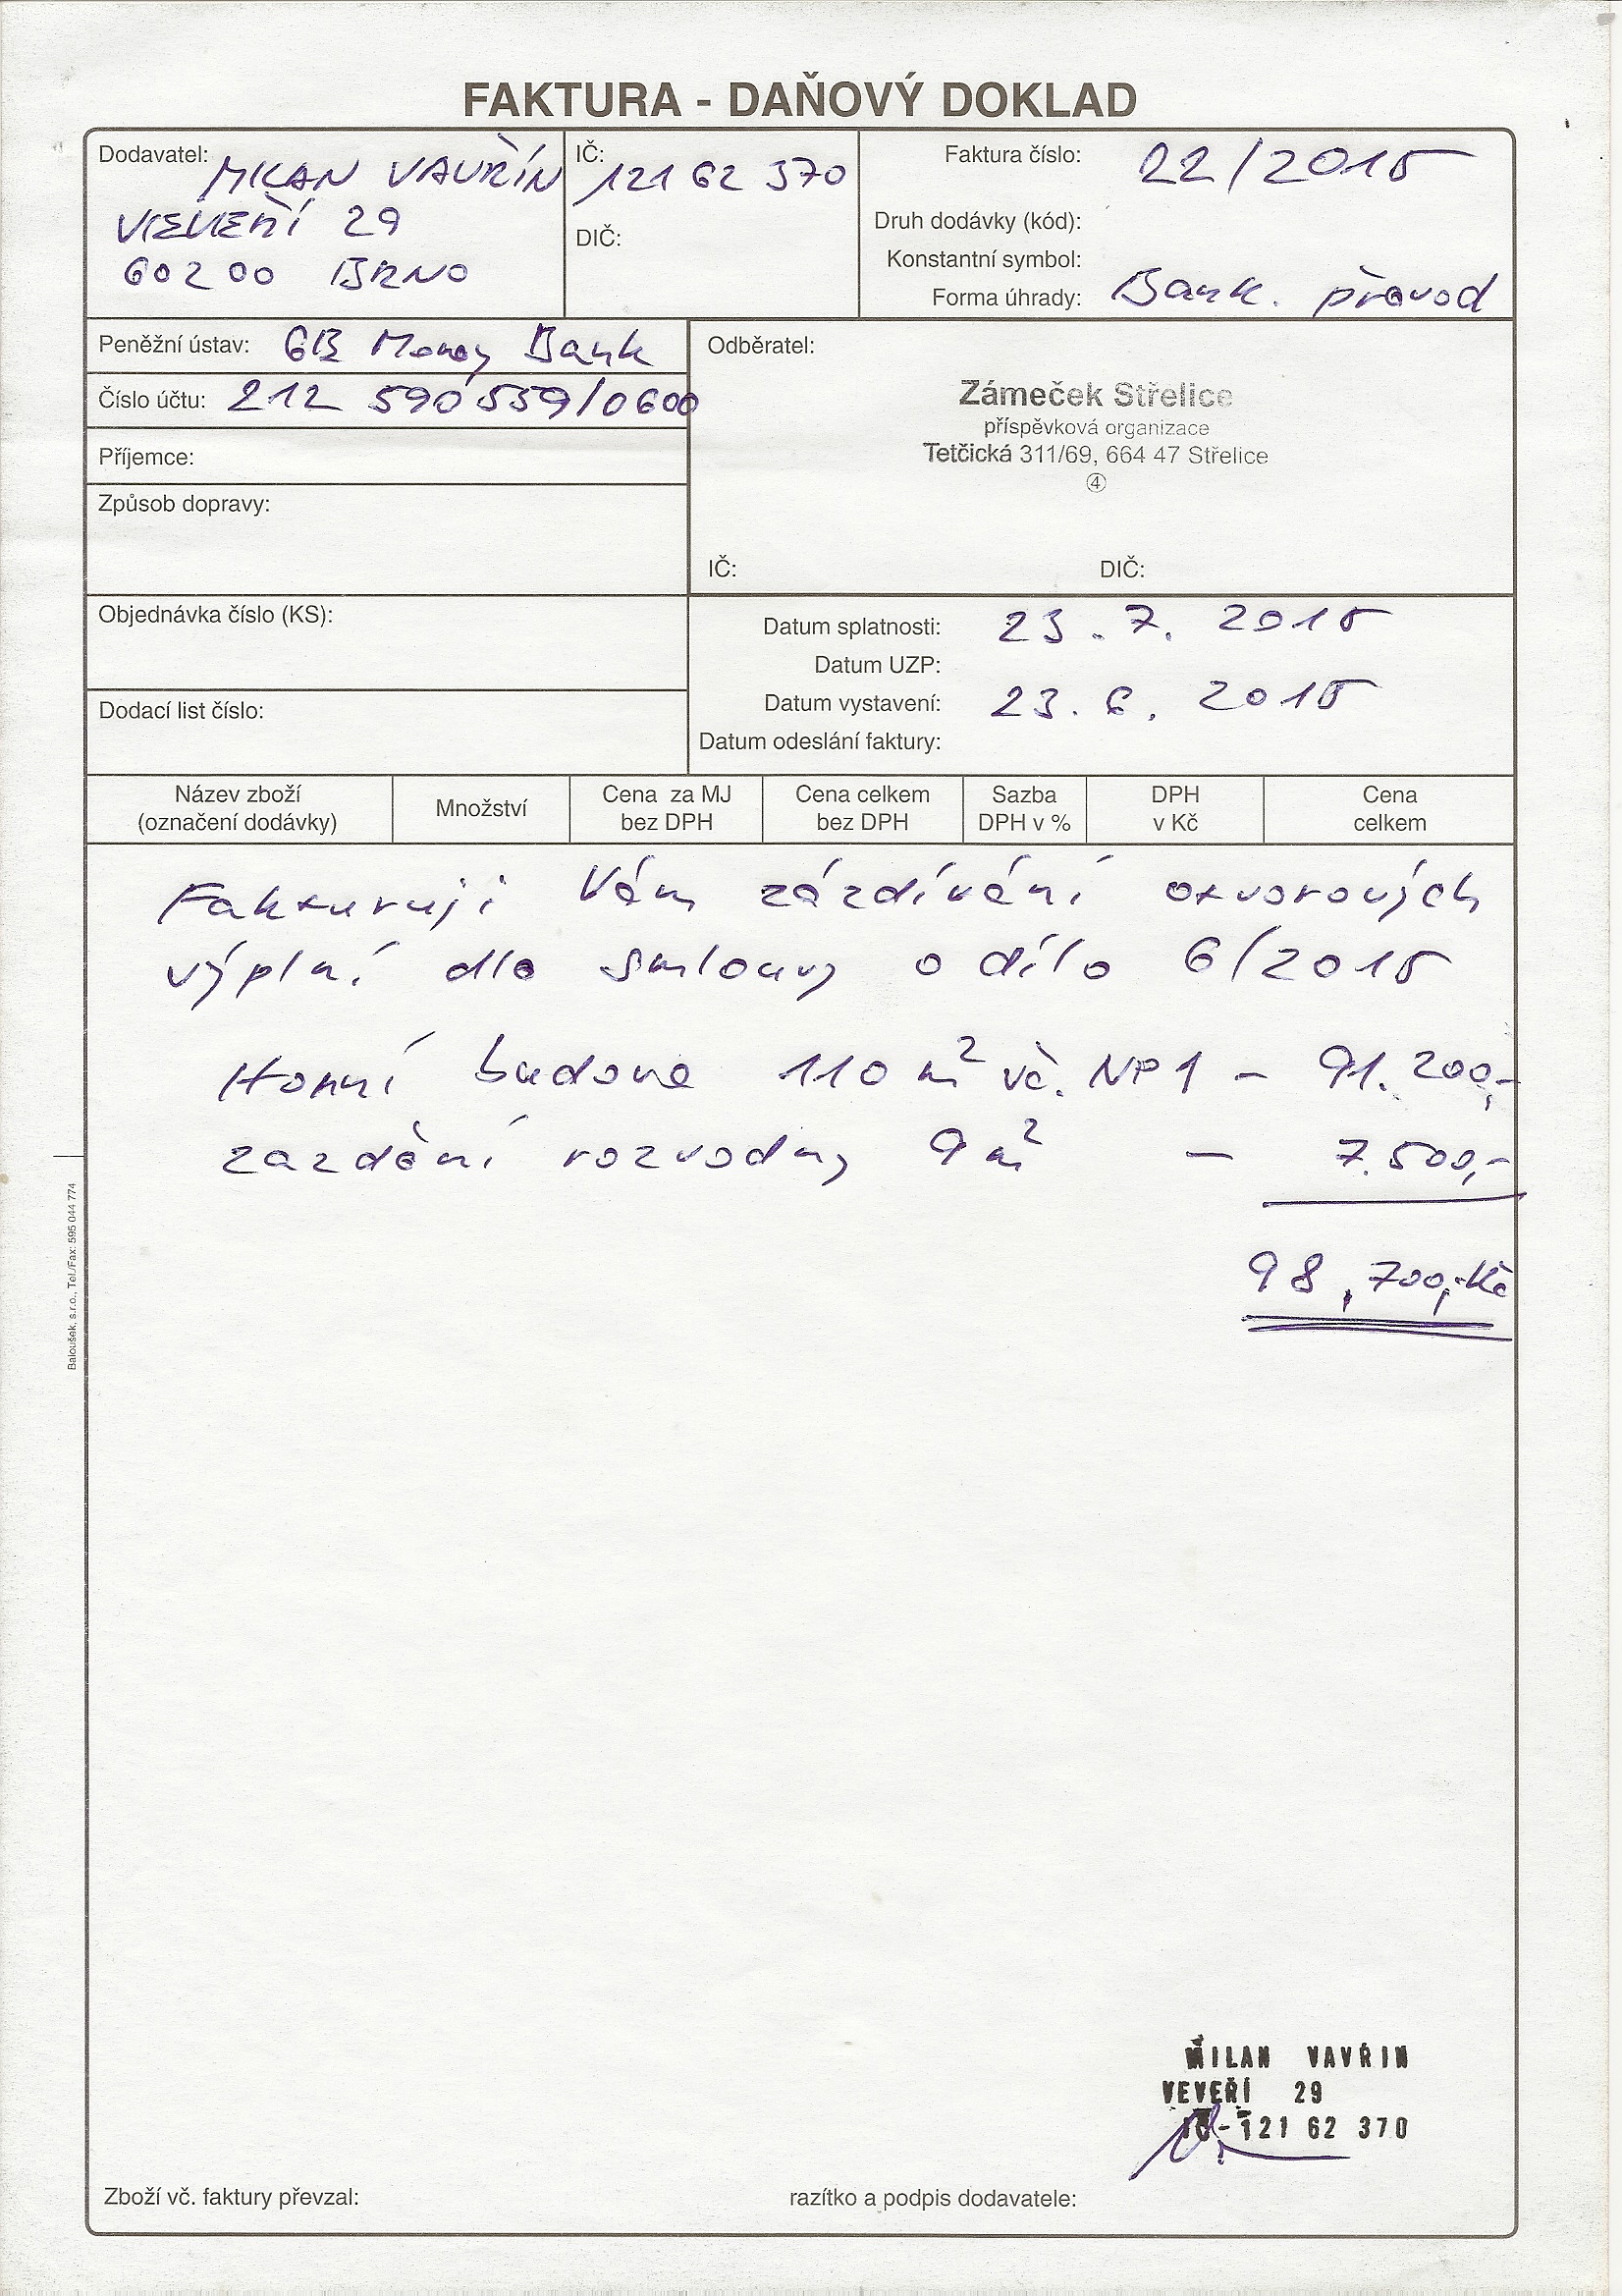 FAKTURA - DAŇOVÝ DOKLAD
Dodavatel: MILAN VAVŘÍN
VEVEŘÍ 29
602 00 BRNO
IČ: 121 62 370
DIČ:
Faktura číslo: 22/2015
Druh dodávky (kód):
Konstantní symbol:
Forma úhrady: Bank. převod
Peněžní ústav: GE Money Bank
Číslo účtu: 212 590 559/0600
Příjemce:
Způsob dopravy:
Odběratel:
Zámeček Střelice
příspěvková organizace
Tetčická 311/69, 664 47 Střelice
④
IČ: DIČ:
Objednávka číslo (KS):
Dodací list číslo:
Datum splatnosti: 23. 7. 2015
Datum UZP:
Datum vystavení: 23. 6. 2015
Datum odeslání faktury:
Název zboží (označení dodávky) Množství Cena za MJ bez DPH Cena celkem bez DPH Sazba DPH v % DPH v Kč Cena celkem
Fakturuji Vám zázdívání otvorových
výplní dle smlouvy o dílo 6/2015
Horní budova 110 m² vč. NP1 - 91.200,-
zazdění rozvodny 9 m² - 7.500,-
98,700,-Kč
Baloušek, s.r.o., Tel./Fax: 595 044 774
MILAN VAVŘIN
VEVEŘÍ 29
IČ-121 62 370
Zboží vč. faktury převzal: razítko a podpis dodavatele: